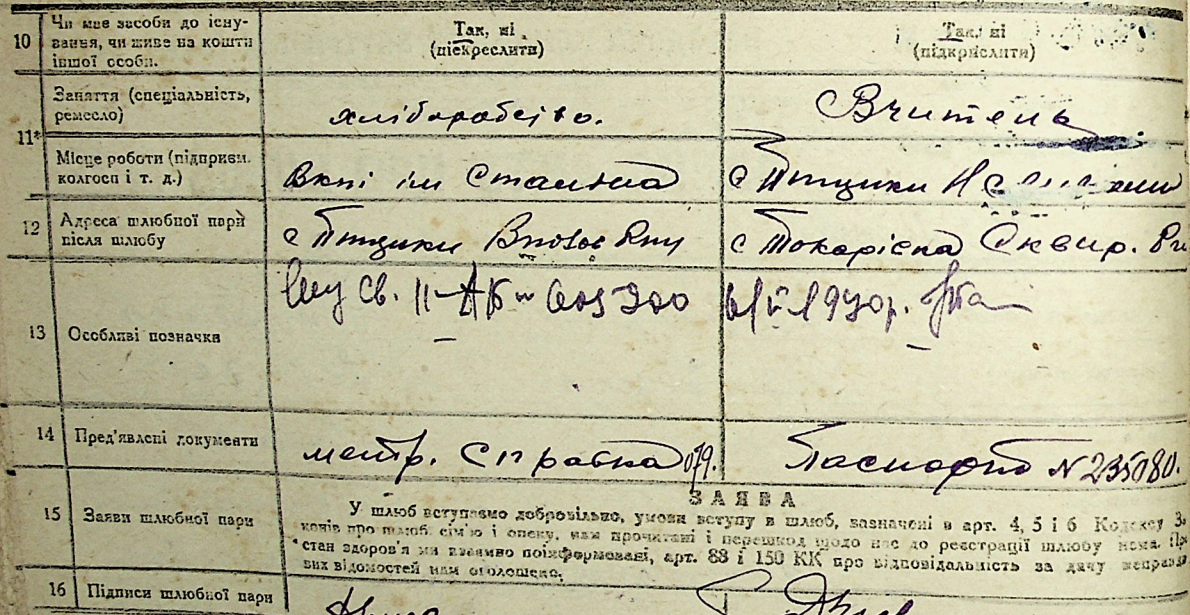 10 Чи має засоби до існу-
вання, чи живе на кошти
іншої особи.
Так, ні
(підкреслити)
Так, ні
(підкрислити)
11*
Заняття (спеціальність,
ремесло)
хліборобство.
Вчитель
Місце роботи (підприєм.
колгосп і т. д.)
ім Сталіна
с Птицики
12 Адреса шлюбної пари
після шлюбу
с Птицики
с Токарівка Сквир. Рн
13 Особливі позначки
Св. II-АК № 005200
1970р.
14 Пред'явлені документи
метр. Справка 079.
Паспорт N 235080.
15 Заяви шлюбної пари
ЗАЯВА
У шлюб вступаємо добровільно, умови вступу в шлюб, зазначені в арт. 4, 5 і 6 Кодексу За-
конів про шлюб, сім'ю і опеку, нам прочитані і перешкод щодо нас до реєстрації шлюбу нема. Про
стан здоров'я ми взаємно поінформовані, арт. 88 і 150 КК про відповідальність за дачу неправди-
вих відомостей нам оголошено.
16 Підписи шлюбної пари